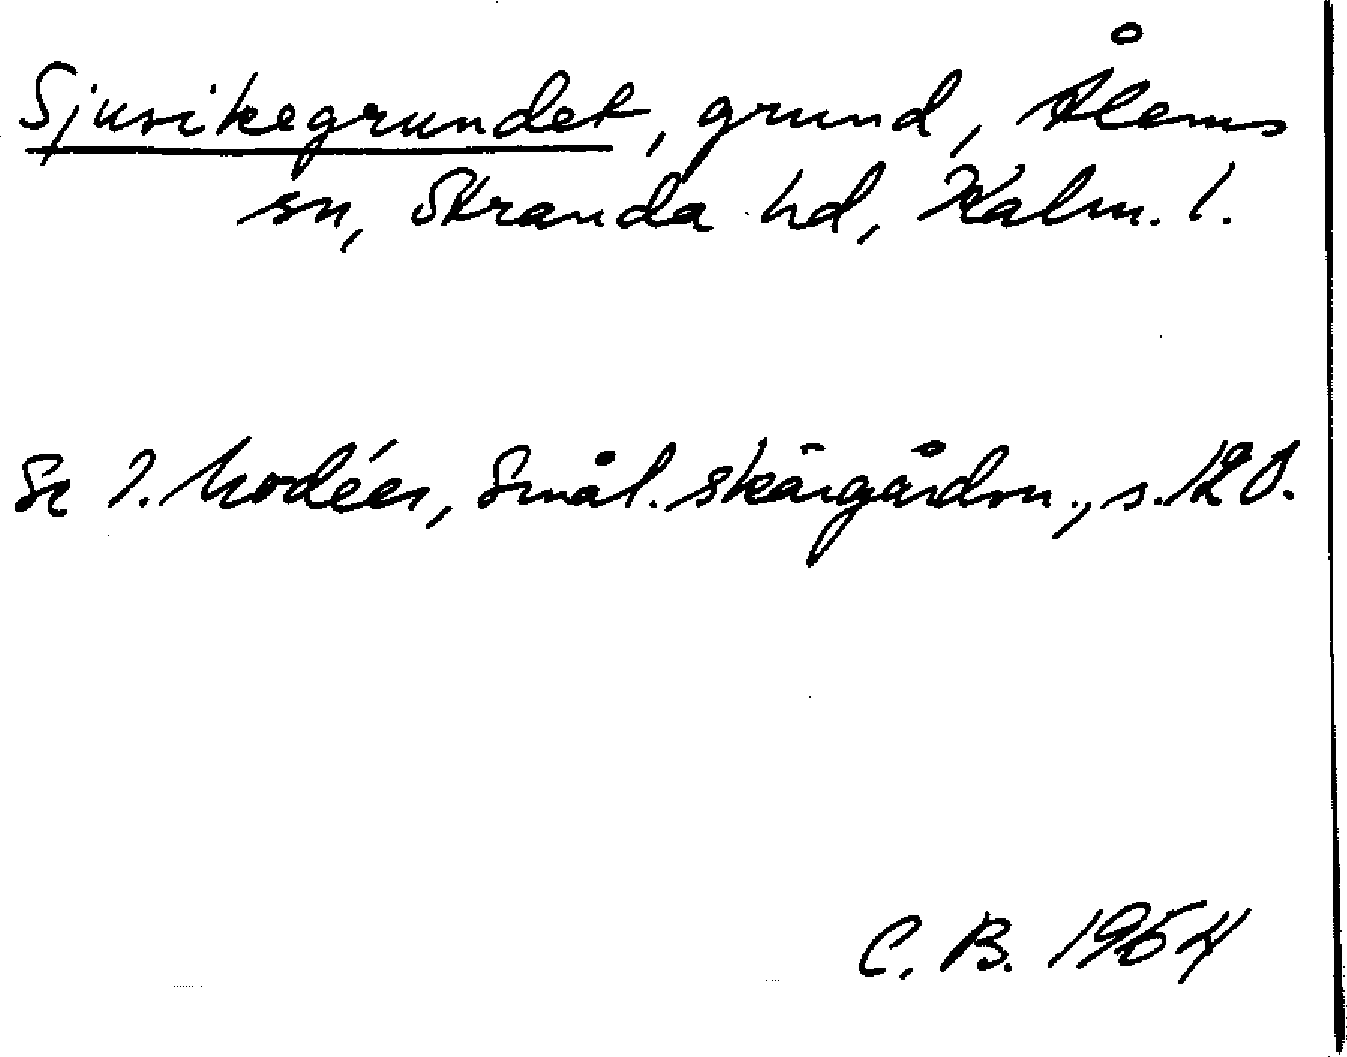 Sjuvikegrundet, grund, Ålems
sn, Stranda hd, Kalm. l.
Se I. Modéer, Smål. skärgårdsn., s. 120.
C. B. 1954